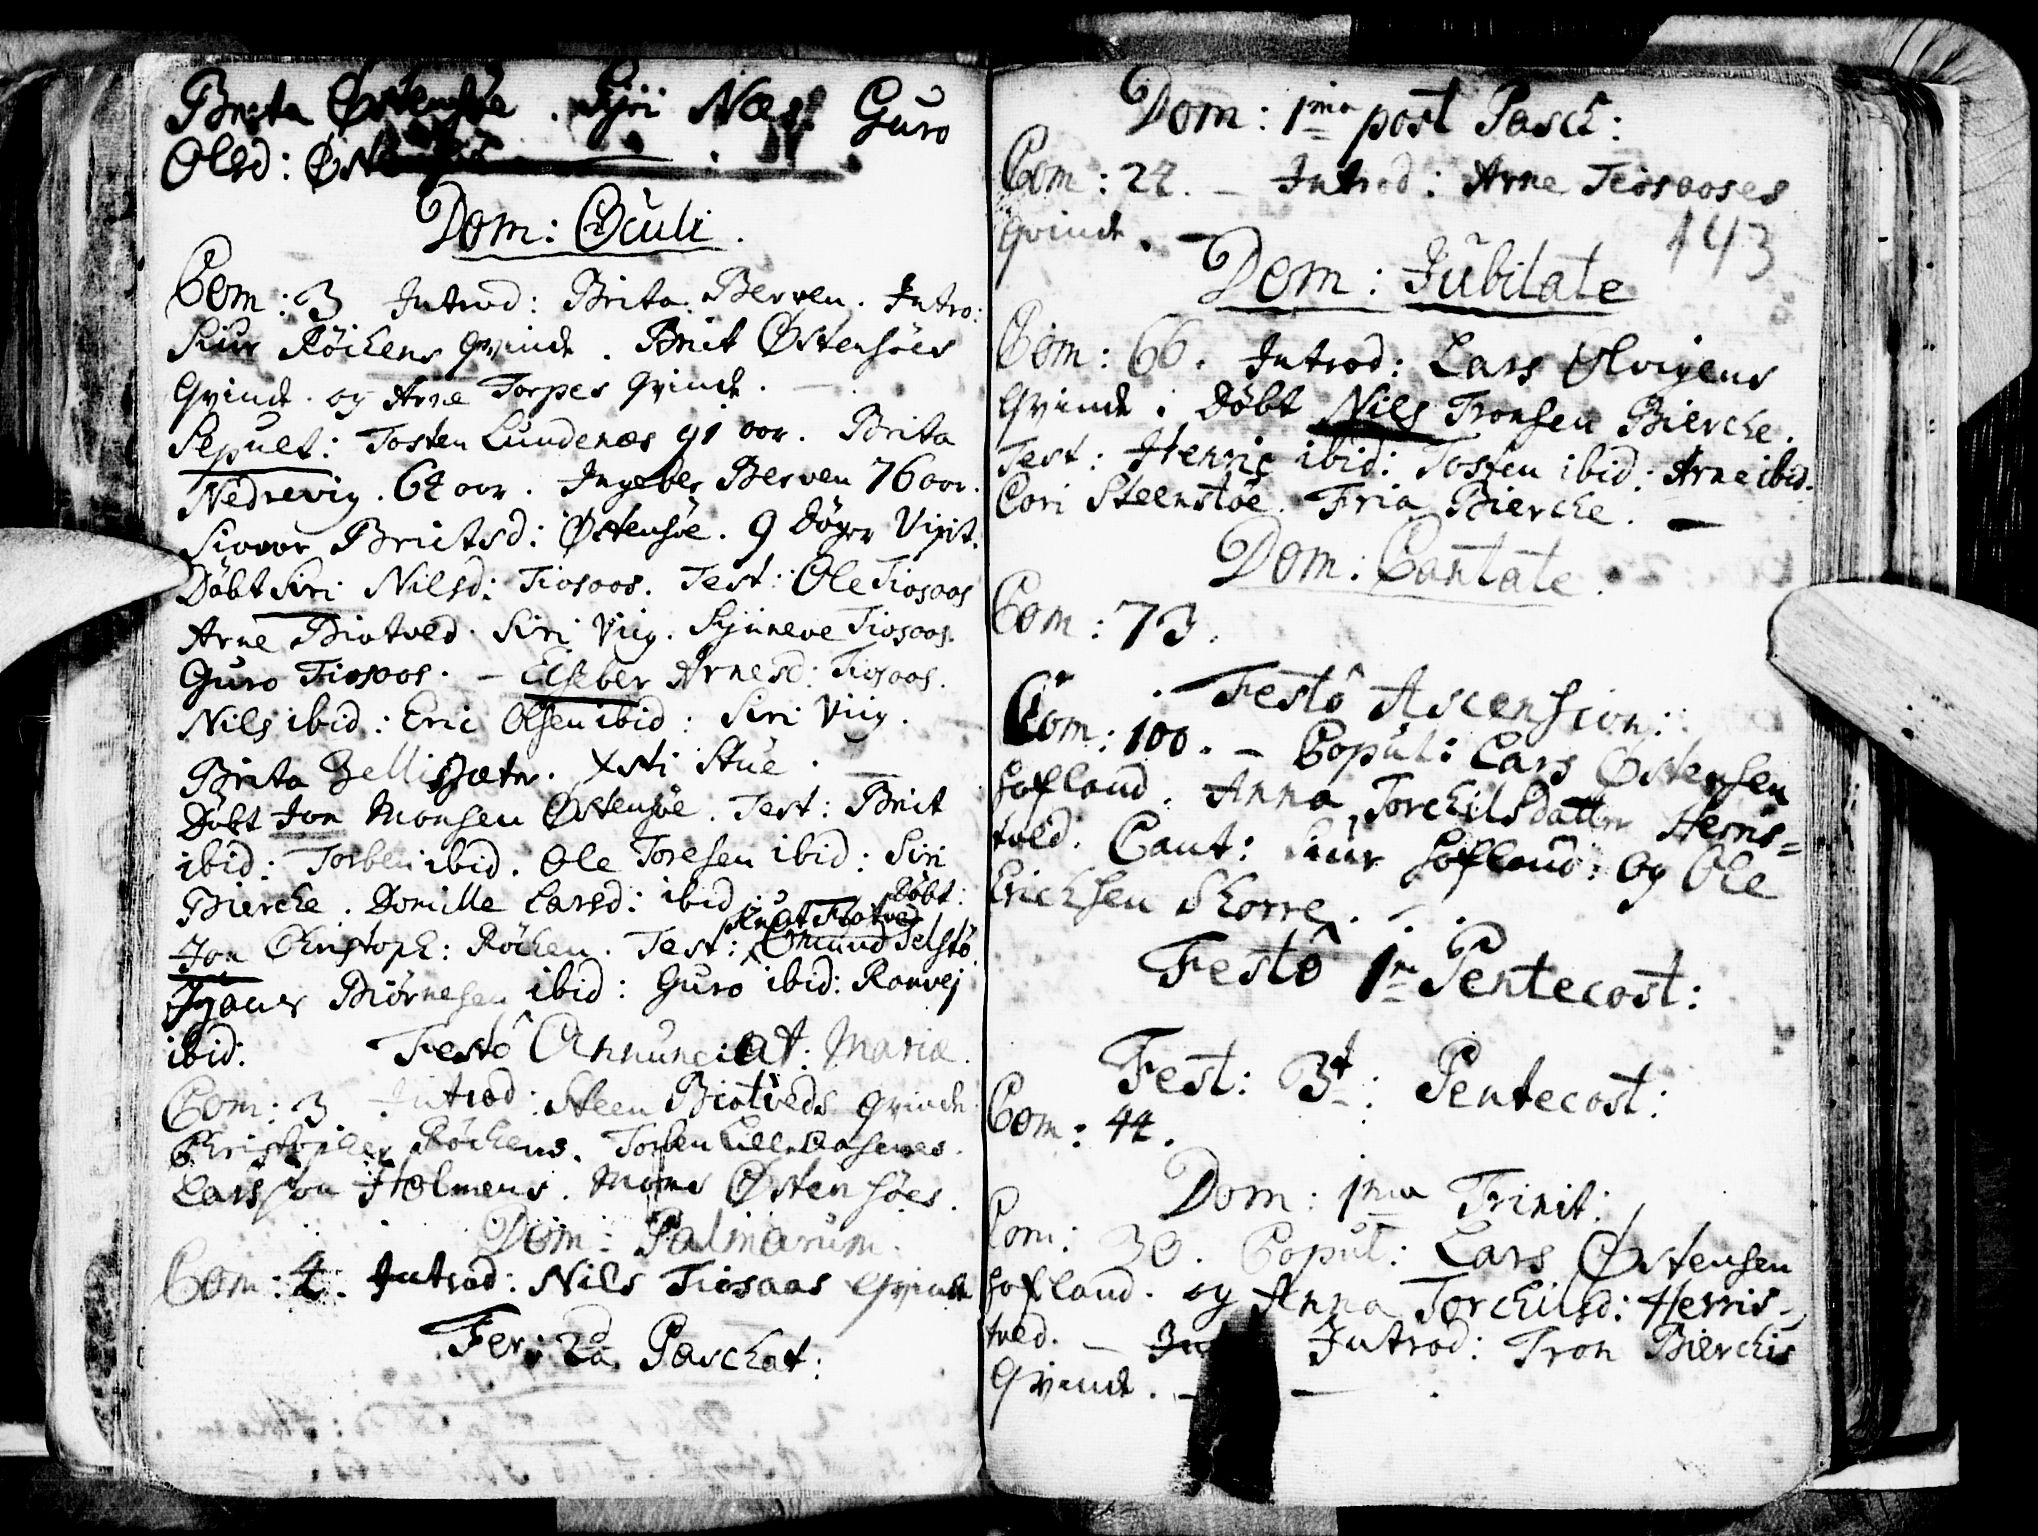 Brita Østensøe . Siri Næs. Guro
Olsd: Østensøe
Dom: Oculi.
Com: 3 Introd: Brita Berven. Intro:
Siur Röikens Qvinde. Brit Østensöes
Qvinde. og Arne Torpes Qvinde. —
Sepult: Tosten Lundenæs 91 aar. Brita
Nedrevig. 64 aar. Ingeber Berven 76 aar.
Brictsd: Østensøe. 9 Döger Vixit.
Döbt Siri Nilsd: Tiosaas. Test: Ole Tiosaas
Arne Biotved. Siri Viig. Sÿneve Tiosaas.
Guro Tiosaas. — Elseber Arnesd: Tiosaas.
Nils ibid: Eric Olsen ibid: Siri Viig.
Brita . Xsti Stue.
Döbt Jon Monsen Østensøe. Test: Brit
ibid: Torben ibid. Ole Toresen ibid: Siri
Bierche. Domille Larsd: ibid. Döbt:
Knut Flotved
Jon Christoph: Röiken. Test: Omund Selstö.
Biörnesen ibid: Guro ibid: Ranvej
ibid: Festô Annunciat: Mariæ.
Com: 3 Introd: Steen Biotveds Qvinde
Christopher Röikens. Torben
Lars Holmens. Mons Østensöes.
Dom: Palmarum.
Com: 4. Introd: Nils Tiosaas Qvinde
Fer: 2da Paschat:
Dom: 1ma post Pasch:
Com: 24. — Introd: Arne Tiosaases
Qvinde. —
143
Dom: Jubilate
Com: 66. Introd: Lars Olvigens
Qvinde. Döbt Nils Tronsen Bierche.
Test: Henric ibid: Tosten ibid: Arne ibid.
Cari Steenstöe. Fria Bierche. —
Dom: Cantate.
Com: 73.
Festô Ascension:
Com: 100. — Copul: Lars Østensen
Sofland. Anna Torchilsdatter Herris-
tved. Caut: Siur Sofland: og Ole
Erichsen Skorre.
Festô 1m Pentecost:
Fest: 3t: Pentecost:
Com: 44.
Dom: 1ma Trinit:
Com: 30. Copul: Lars Østensen
Sofland. og Anna Torchilsd: Herris-
tved. — Introd: Tron Bierchis
Qvinde. —